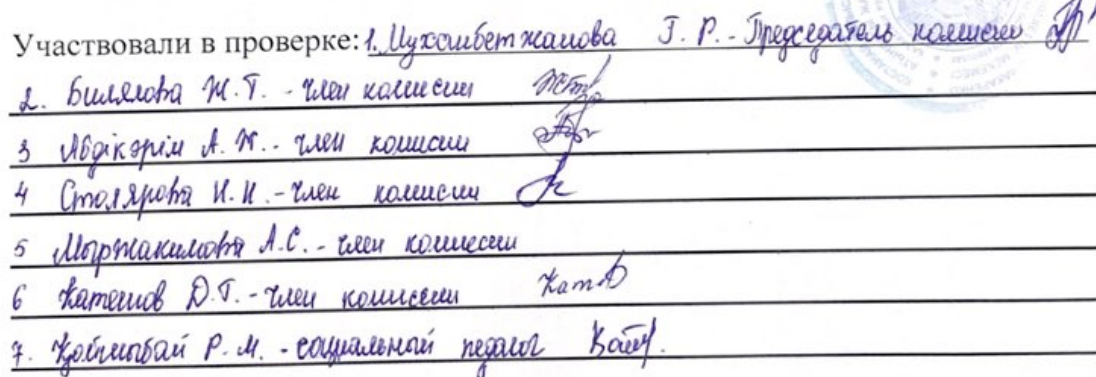 Участвовали в проверке: 1. Мухамбетжанова Г. Р. - Председатель комиссии
2. Билялова Ж. Т. - член комиссии
3 Абдікәрім А. Ж. - член комиссии
4 Столярова И. И. - член комиссии
5 Мыржакимова А. С. - член комиссии
6 Катенов Д. Т. - член комиссии
7. Р. М. - социальный педагог